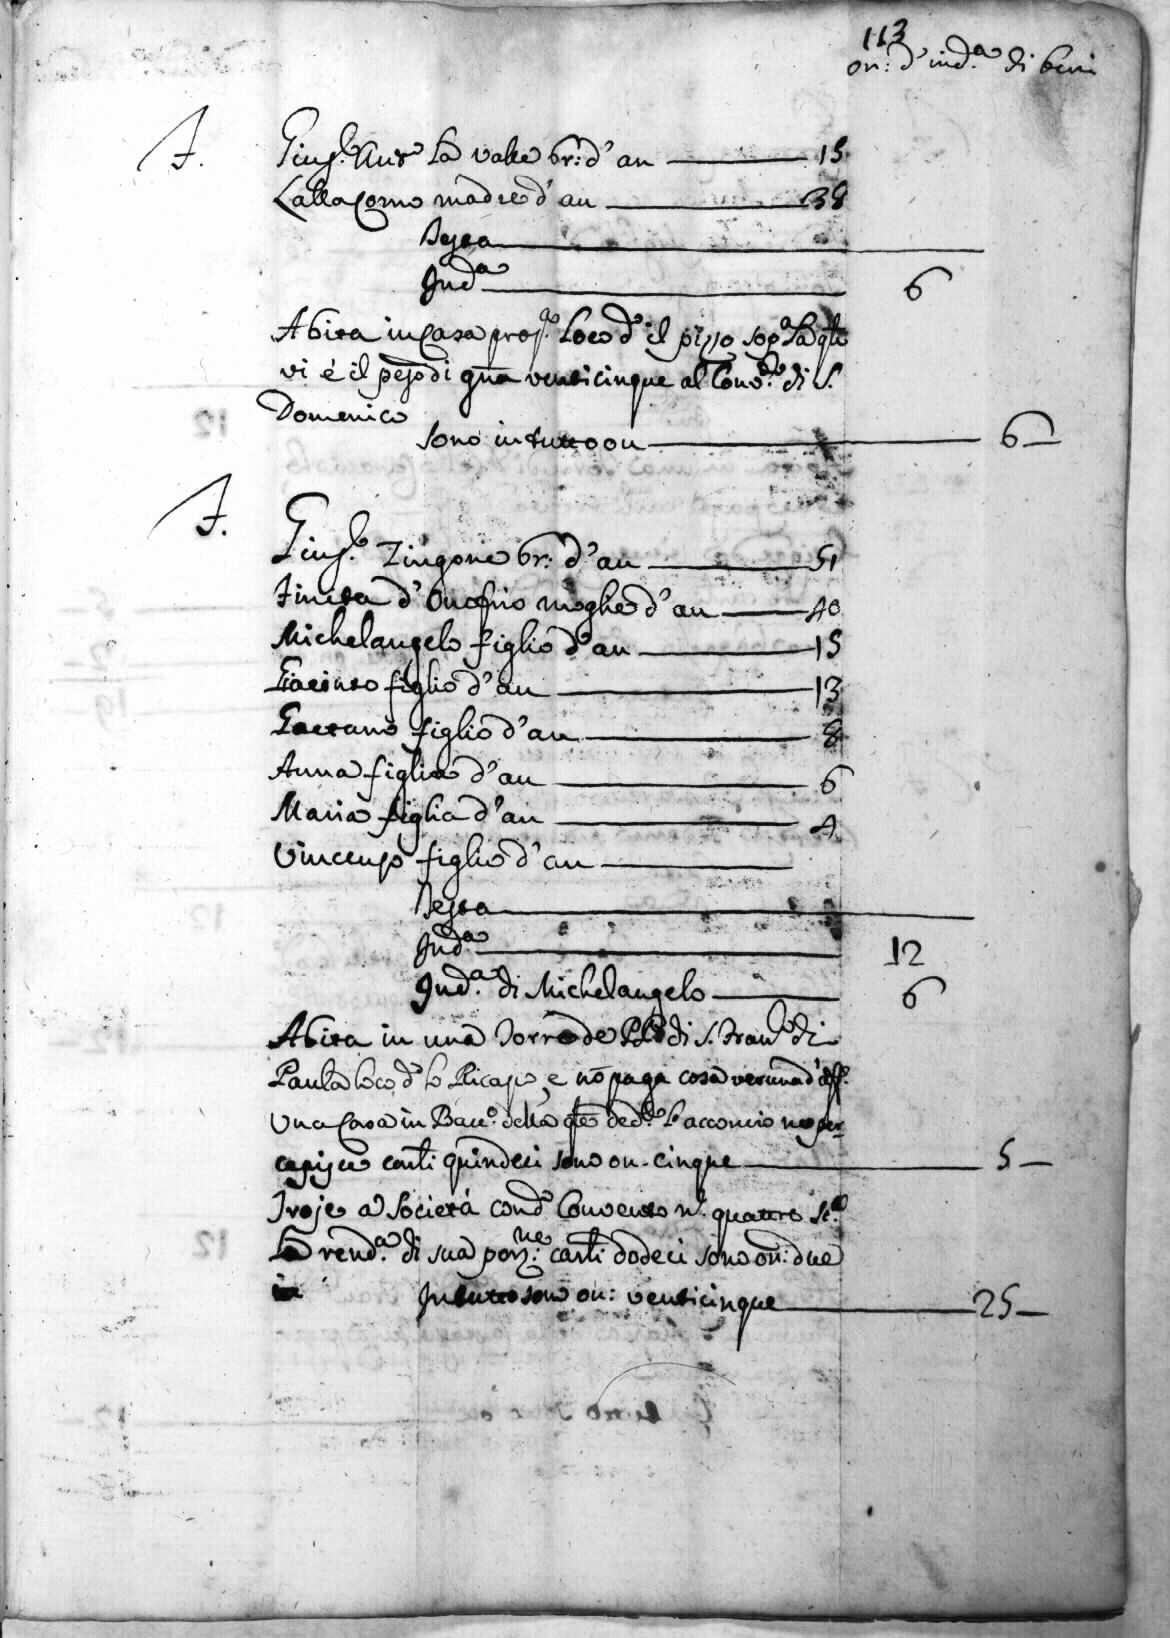 113
on: d'ind.a di beni
F.
Gius.e Ant.o La valle br: d'an 15
Lalla Corno madre d'an 38
Testa
Ind.a 6
Abita in Casa prop.a loco d.o il pizzo sop.a la q.le
vi è il peso di gna venticinque al Conv.to di S.
Domenico
sono in tutto on 6
F.
Gius.e Zingone br: d'an 51
Tineta d'Onofrio moglie d'an 40
Michelangelo figlio d'an 15
Giacinto figlio d'an 13
Gaetano figlio d'an 8
Anna figlia d'an 6
Maria figlia d'an 4
Vincenzo figlio d'an
Testa
Ind.a 12
Ind.a di Michelangelo 6
Abita in una Torre de PP di S. Fran.co di
Paula loco d.o lo Ricapo, e nō paga cosa veruna d'aff.
Una Casa in Bacc.o della q.le ded.to l'acconcio ne per
cepisce carli quindeci sono on. cinque 5
Troje a Società con d.o Convento n.o quattro
La rend.a di sua porz.ne: carli dodeci sono on: due
In tutto sono on: venticinque 25